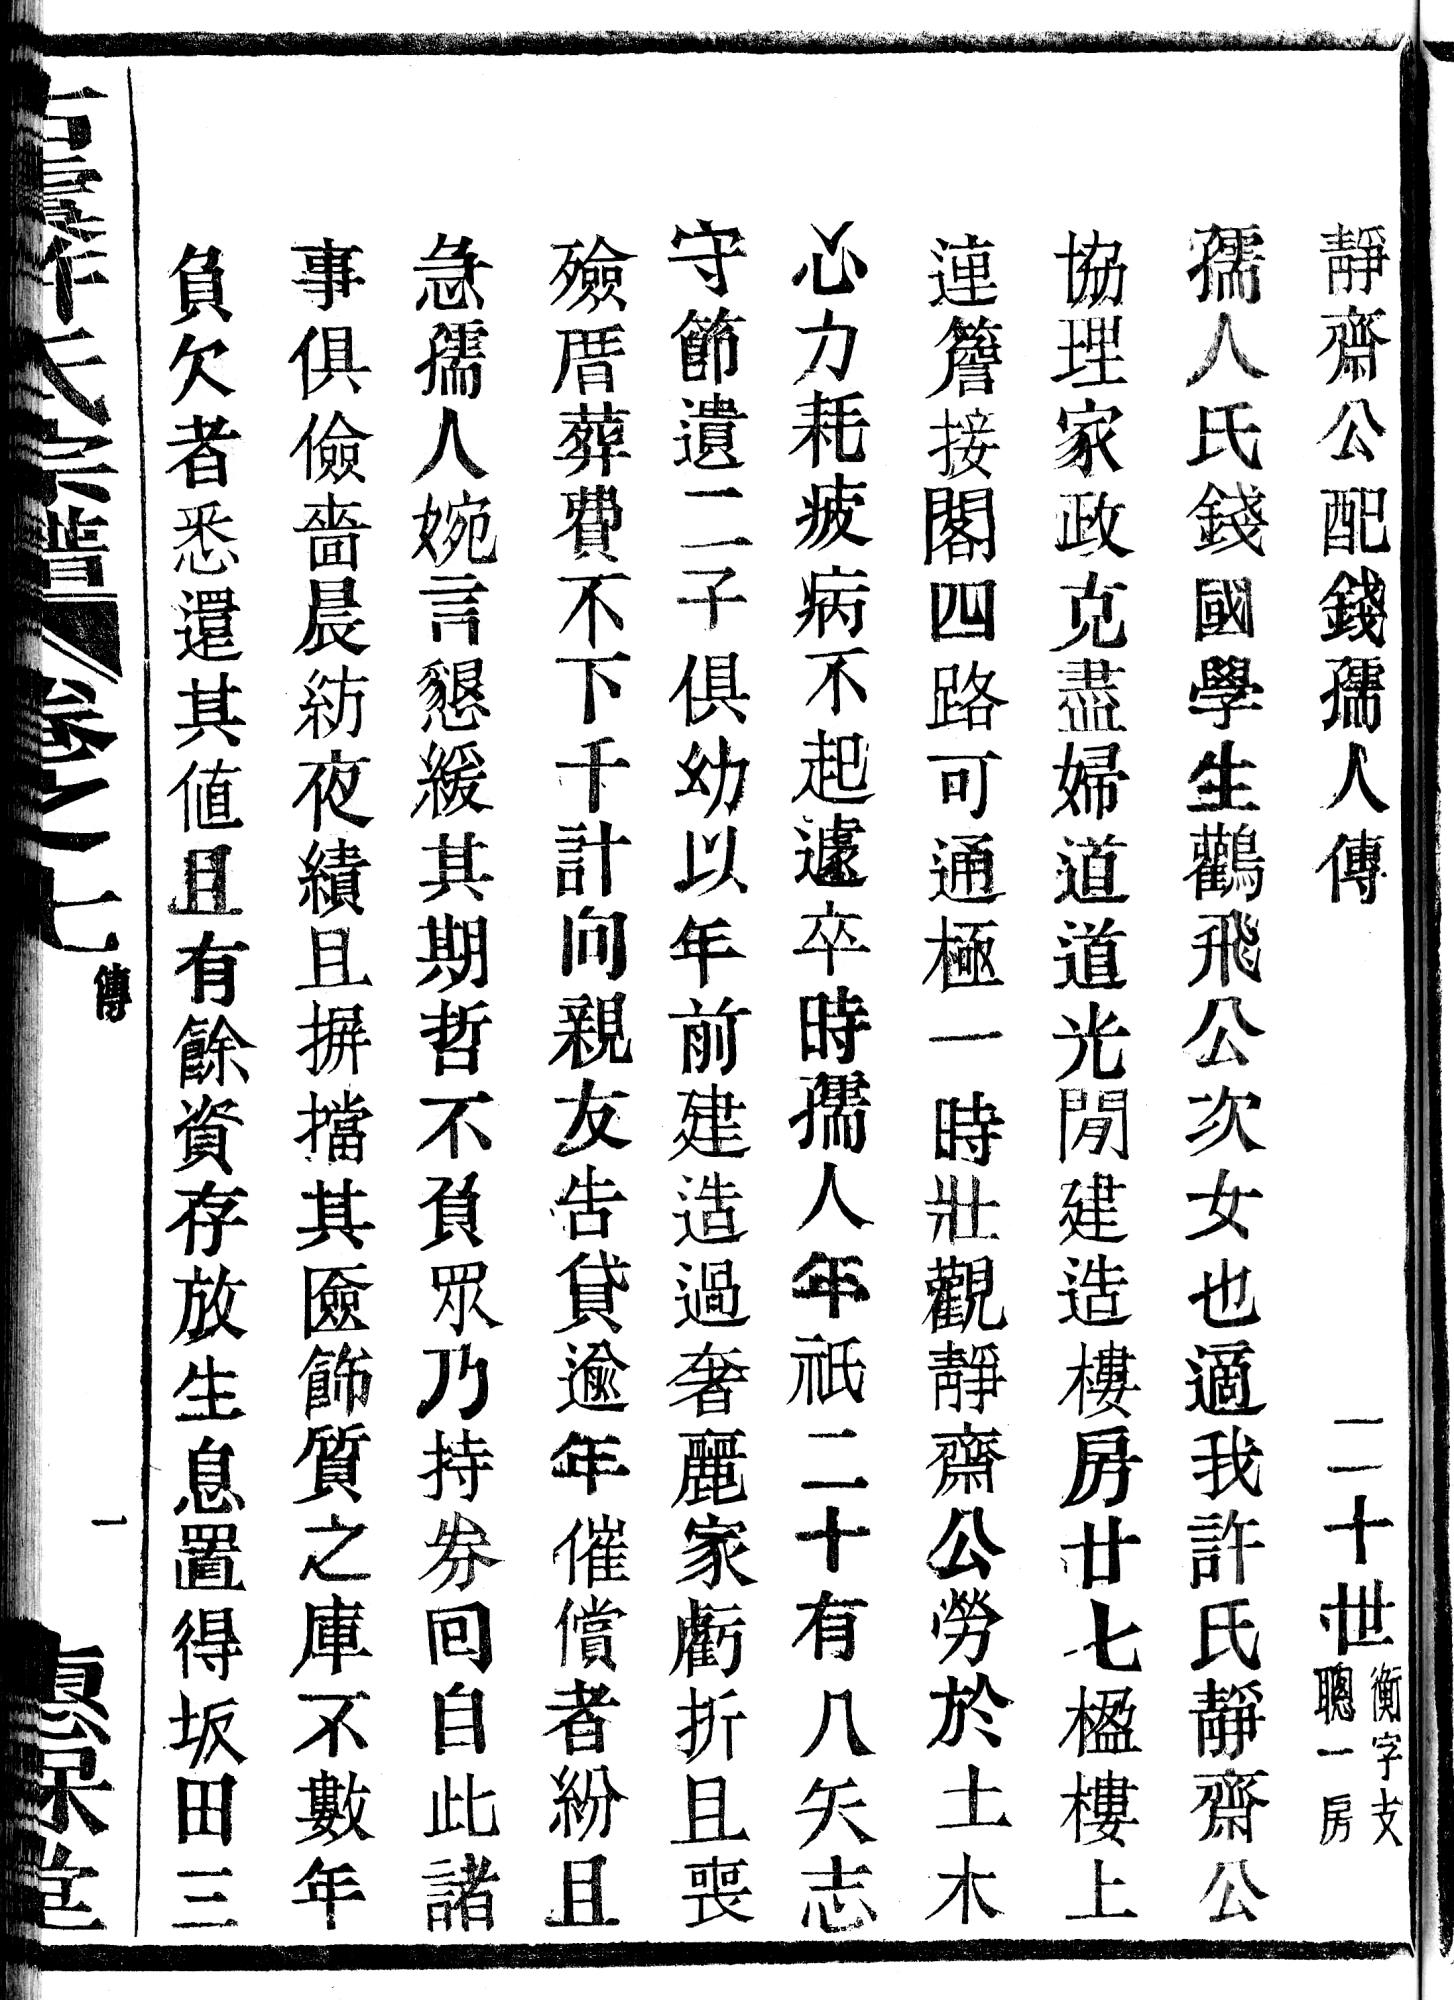 靜齋公配錢孺人傳 二十世 衡字支 聰一房
孺人氏錢國學生鸛飛公次女也適我許氏靜齋公
協理家政克盡婦道道光閒建造樓房廿七楹樓上
連簷接閣四路可通極一時壯觀靜齋公勞於土木
心力耗疲病不起遽卒時孺人年祇二十有八矢志
守節遺二子俱幼以年前建造過奢麗家虧折且喪
殮厝葬費不下千計向親友告貸逾年催償者紛且
急孺人婉言懇緩其期哲不負眾乃持券回自此諸
事俱儉嗇晨紡夜績且摒擋其匳飾質之庫不數年
負欠者悉還其値且有餘資存放生息置得坂田三
氏宗譜 卷之七 傳 一